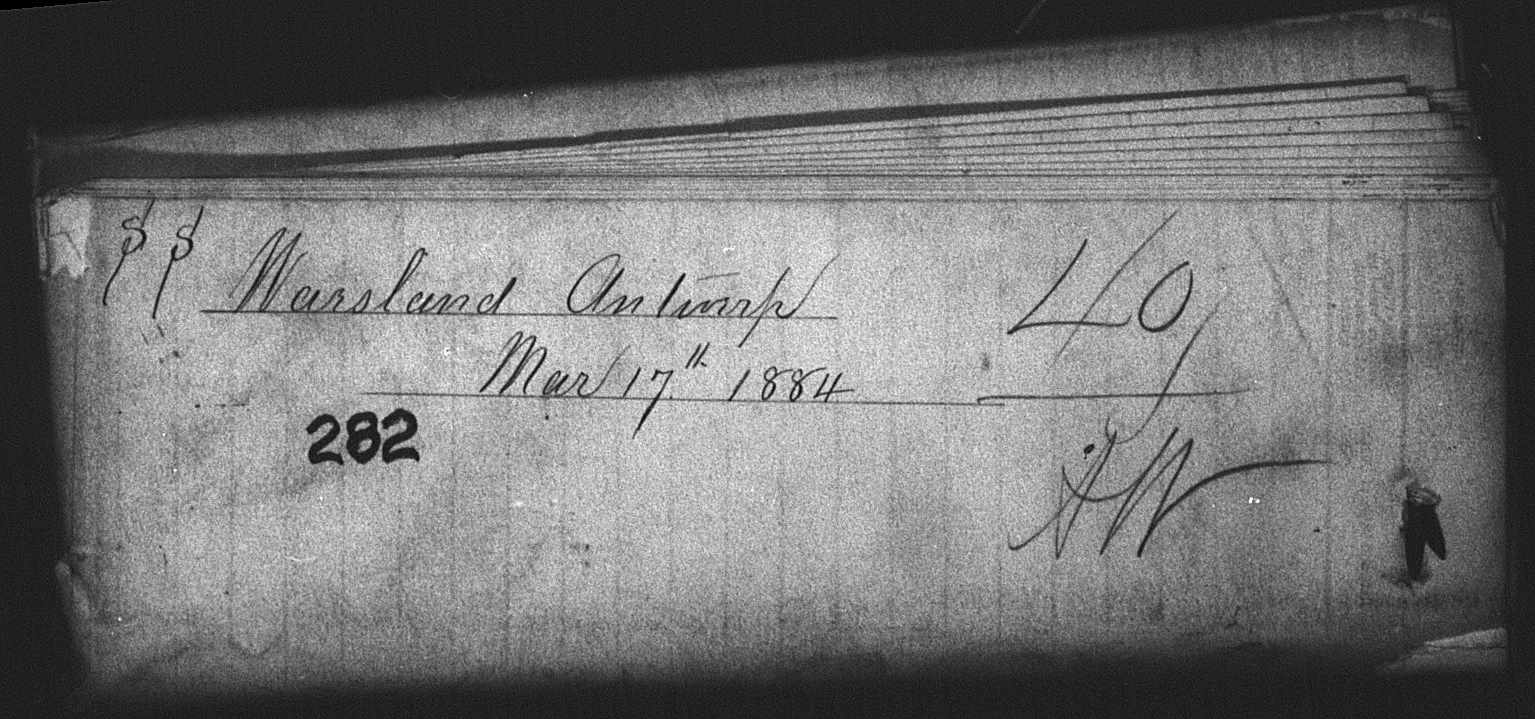 SS Waesland Antwerp 40
Mar 17th 1884
282